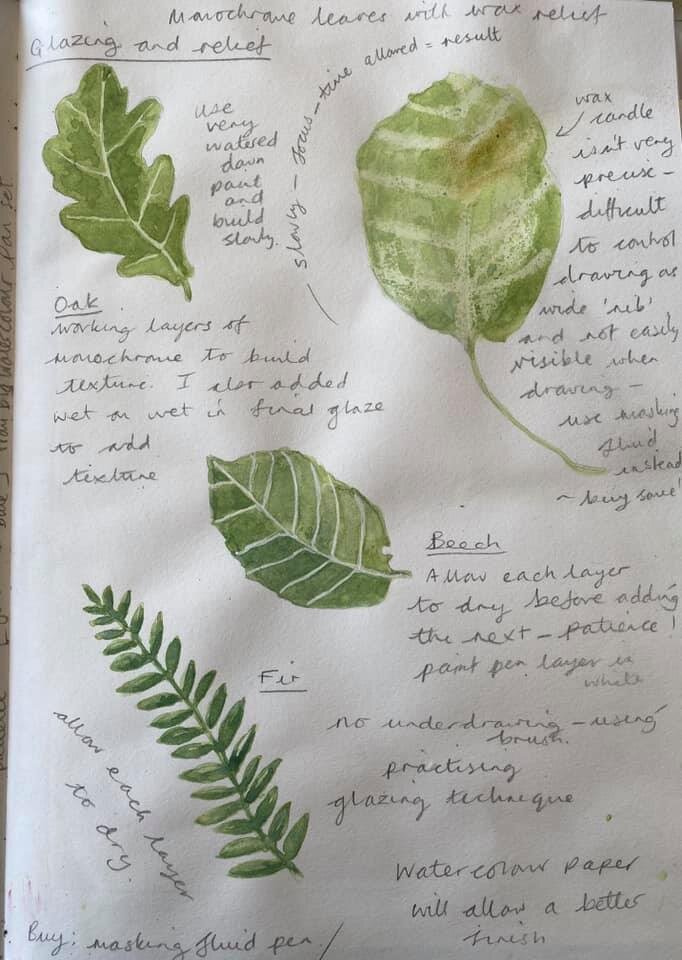 Monochrome leaves with wax relief
Glazing and relief
slowly - focus - time allowed = result
use
very
watered
down
paint
and
build
slowly.
wax
candle
isn't very
precise -
difficult
to control
drawing as
wide 'nib'
and not easily
visible when
drawing -
use masking
fluid
instead
~ buy some!
Oak
working layers of
monochrome to build
texture. I also added
wet on wet in final glaze
to add
texture
Beech
Allow each layer
to dry before adding
the next - patience!
paint pen layer in
white
Fir
no underdrawing - using
brush.
practising
glazing technique
allow each layer
to dry
Watercolour paper
will allow a better
finish
Buy: masking fluid pen.
watercolour pan set